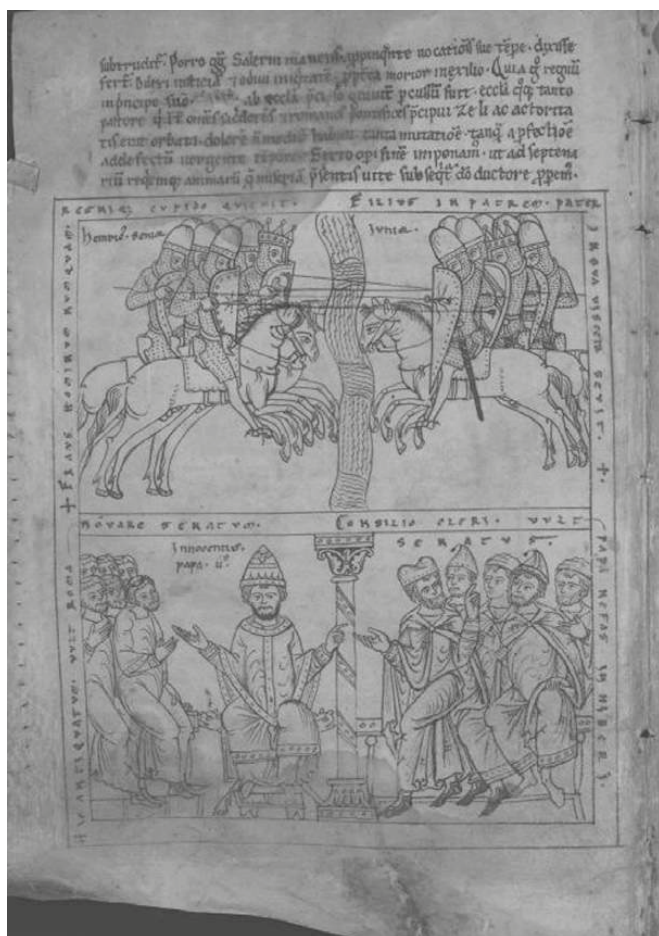 subtrudit᷑. Porro gg̅ Salerni manens, appinq̅nte uocatiois̅ sue te̅pe. dixisse
fert᷑. Dilexi iusticia̅ ⁊ odiui iniq̅tate̅. ppt̅ea morior in exilio. Quia g̊ regnu̅
in principe suo ab eccl̅a p̅ciso graui pcussu̅ fuit. eccl̅a q̊q; tanto
pastore om̅s sacerdotes romanos pontifices p̅cipui zeli ac auctorita
tis erat orbata. dolore̅ n̅ modicu̅ habuit tanta mutatio̅e. tanq̅ a pfectio̅e
ad defectu̅ uergente te̅pore. Sexto opi fine̅ imponam᷒. ut ad septena
riu̅ requiemq; animaru̅ q̅ miseria̅ p̅sentis uite subseqt᷑ do̅ ductore ppem᷒.
REGNIQ; CUPIDO QUIEUIT. FILIUS IN PATREM. PATER
IN SUA UISCERA SEUIT. +
+ FRAUS HOMINUM NUMQUAM.
Henric᷒. senior
iunior
NOUARE SENATUM. CONSILIO CLERI. UULT
SENATUS.
Innocentius
papa. ii᷒
+ ANTIQUATUM. UULT ROMA
PAPA NEFAS INHIBERI.